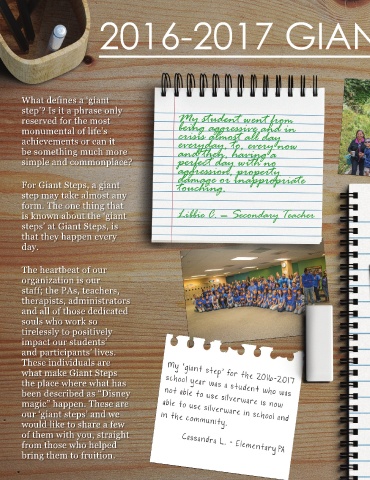 2016-2017 GIAN
What defines a ‘giant
step’? Is it a phrase only
reserved for the most
monumental of life’s
achievements or can it
be something much more
simple and commonplace?
For Giant Steps, a giant
step may take almost any
form. The one thing that
is known about the ‘giant
steps’ at Giant Steps, is
that they happen every
day.
The heartbeat of our
organization is our
staff; the PAs, teachers,
therapists, administrators
and all of those dedicated
souls who work so
tirelessly to positively
impact our students’
and participants’ lives.
These individuals are
what make Giant Steps
the place where what has
been described as “Disney
magic” happen. These are
our ‘giant steps’ and we
would like to share a few
of them with you, straight
from those who helped
bring them to fruition.
My student went from
being aggressive and in
crisis almost all day
everyday, to, every now
and then, having a
perfect day with no
aggression, property
damage or inappropriate
touching.
Libbie C. — Secondary Teacher
My ‘giant step’ for the 2016-2017
school year was a student who was
not able to use silverware is now
able to use silverware in school and
in the community.
Cassandra L. - Elementary PA